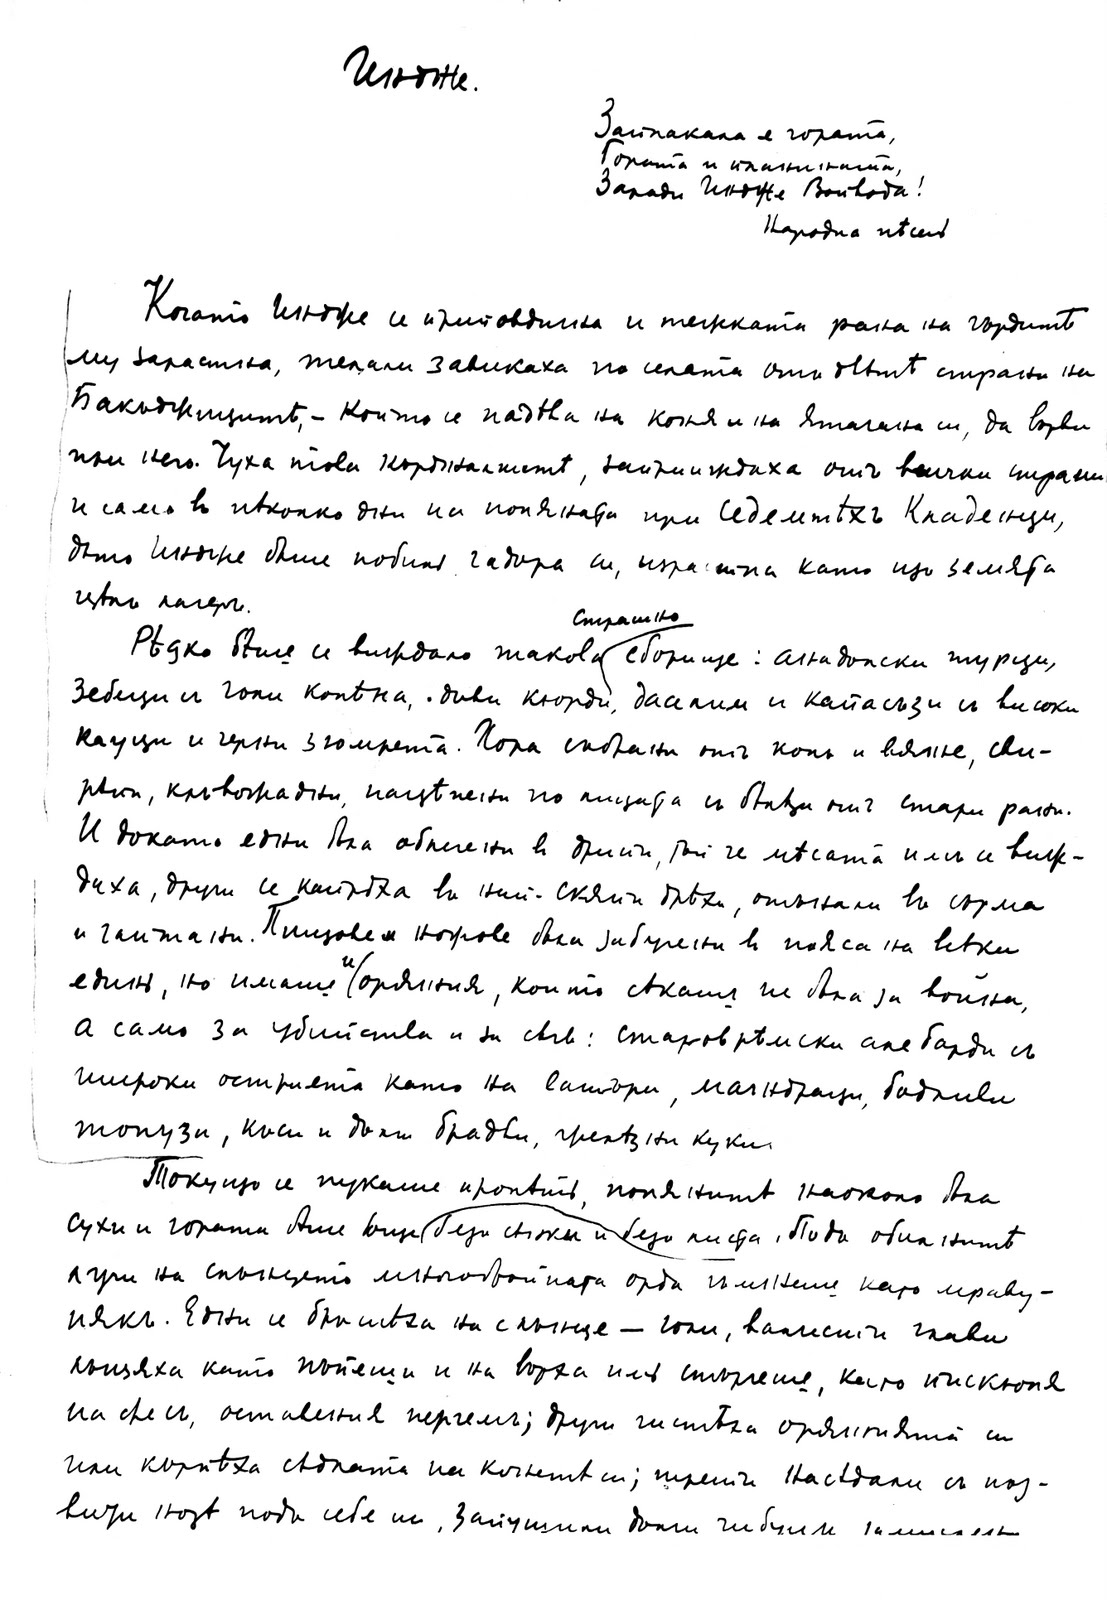 Индже.
Заплакала е гората,
Гората и планината,
Заради Индже Войвода!
Народна пѣсень
Когато Индже се привдигна и тежката рана на гърдитѣ
му зарастна, телали завикаха по селата отъ дветѣ страни на
Бакъджицитѣ, – който се надѣва на коня и на ятагана си, да върви
при него. Чуха това кърджалиитѣ, заприиждаха отъ всички страни
и само въ нѣколко дни на поляната при Седемтѣхъ Кладенци,
дѣто Индже бѣше побилъ чадъра си, израстна като изъ земята
цѣлъ лагеръ.
страшно
Рѣдко бѣше се виждало такова сборище: анадолски турци,
Зебеци съ голи колѣна, диви кюрди, даалии и капасъзи съ високи
кауци и черни зюмрета. Хора събрани отъ колъ и вяже, сви-
рѣпи, кръвожадни, нацѣпени по лицата съ бѣлези отъ стари рани.
И докато едни бѣха облечени въ дрипи, тъй че мѣсата имъ се виж-
даха, други се кипрѣха въ най-скъпи дрѣхи, отънали въ сърма
и гайтани. Пищови и ножове бѣха забучени въ пояса на всѣки
единъ, но имаше и орѫжия, които сѣкашъ не бѣха за война,
а само за убийства и за сѣчь: старовремски алебарди съ
широки остриета като на сатъри, маждраци, бодливи
топузи, къси и дълги брадви, желѣзни куки.
Токущо се пукаше пролѣтьта, полянитѣ наоколо бѣха
сухи и гората бѣше още безъ сѣнки и безъ листа. Подъ обилнитѣ
лучи на слънцето многобройната орда гъмжеше като мраву-
някъ. Едни се брьснѣха на слънце – голи, валчести глави
лъщяха като пъпеши и на върха имъ стърчеше, като пискюлъ
на фесъ, оставения перчемъ; други чистѣха орѫжията си
или кърпѣха сѣдлата на конетѣ си; трети насѣдали съ под-
вити нозѣ подъ себе си, запушили дълги чибуци